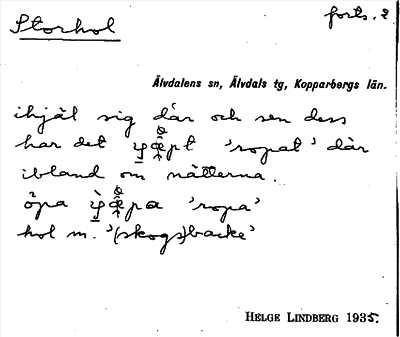 Storhol
forts. 2
Älvdalens sn, Älvdals tg, Kopparbergs län.
ihjäl sig där och sen dess
har det 'ropat' där
ibland om nätterna.
öpa 'ropa'
hol m. '(skogs)backe'
HELGE LINDBERG 1935.